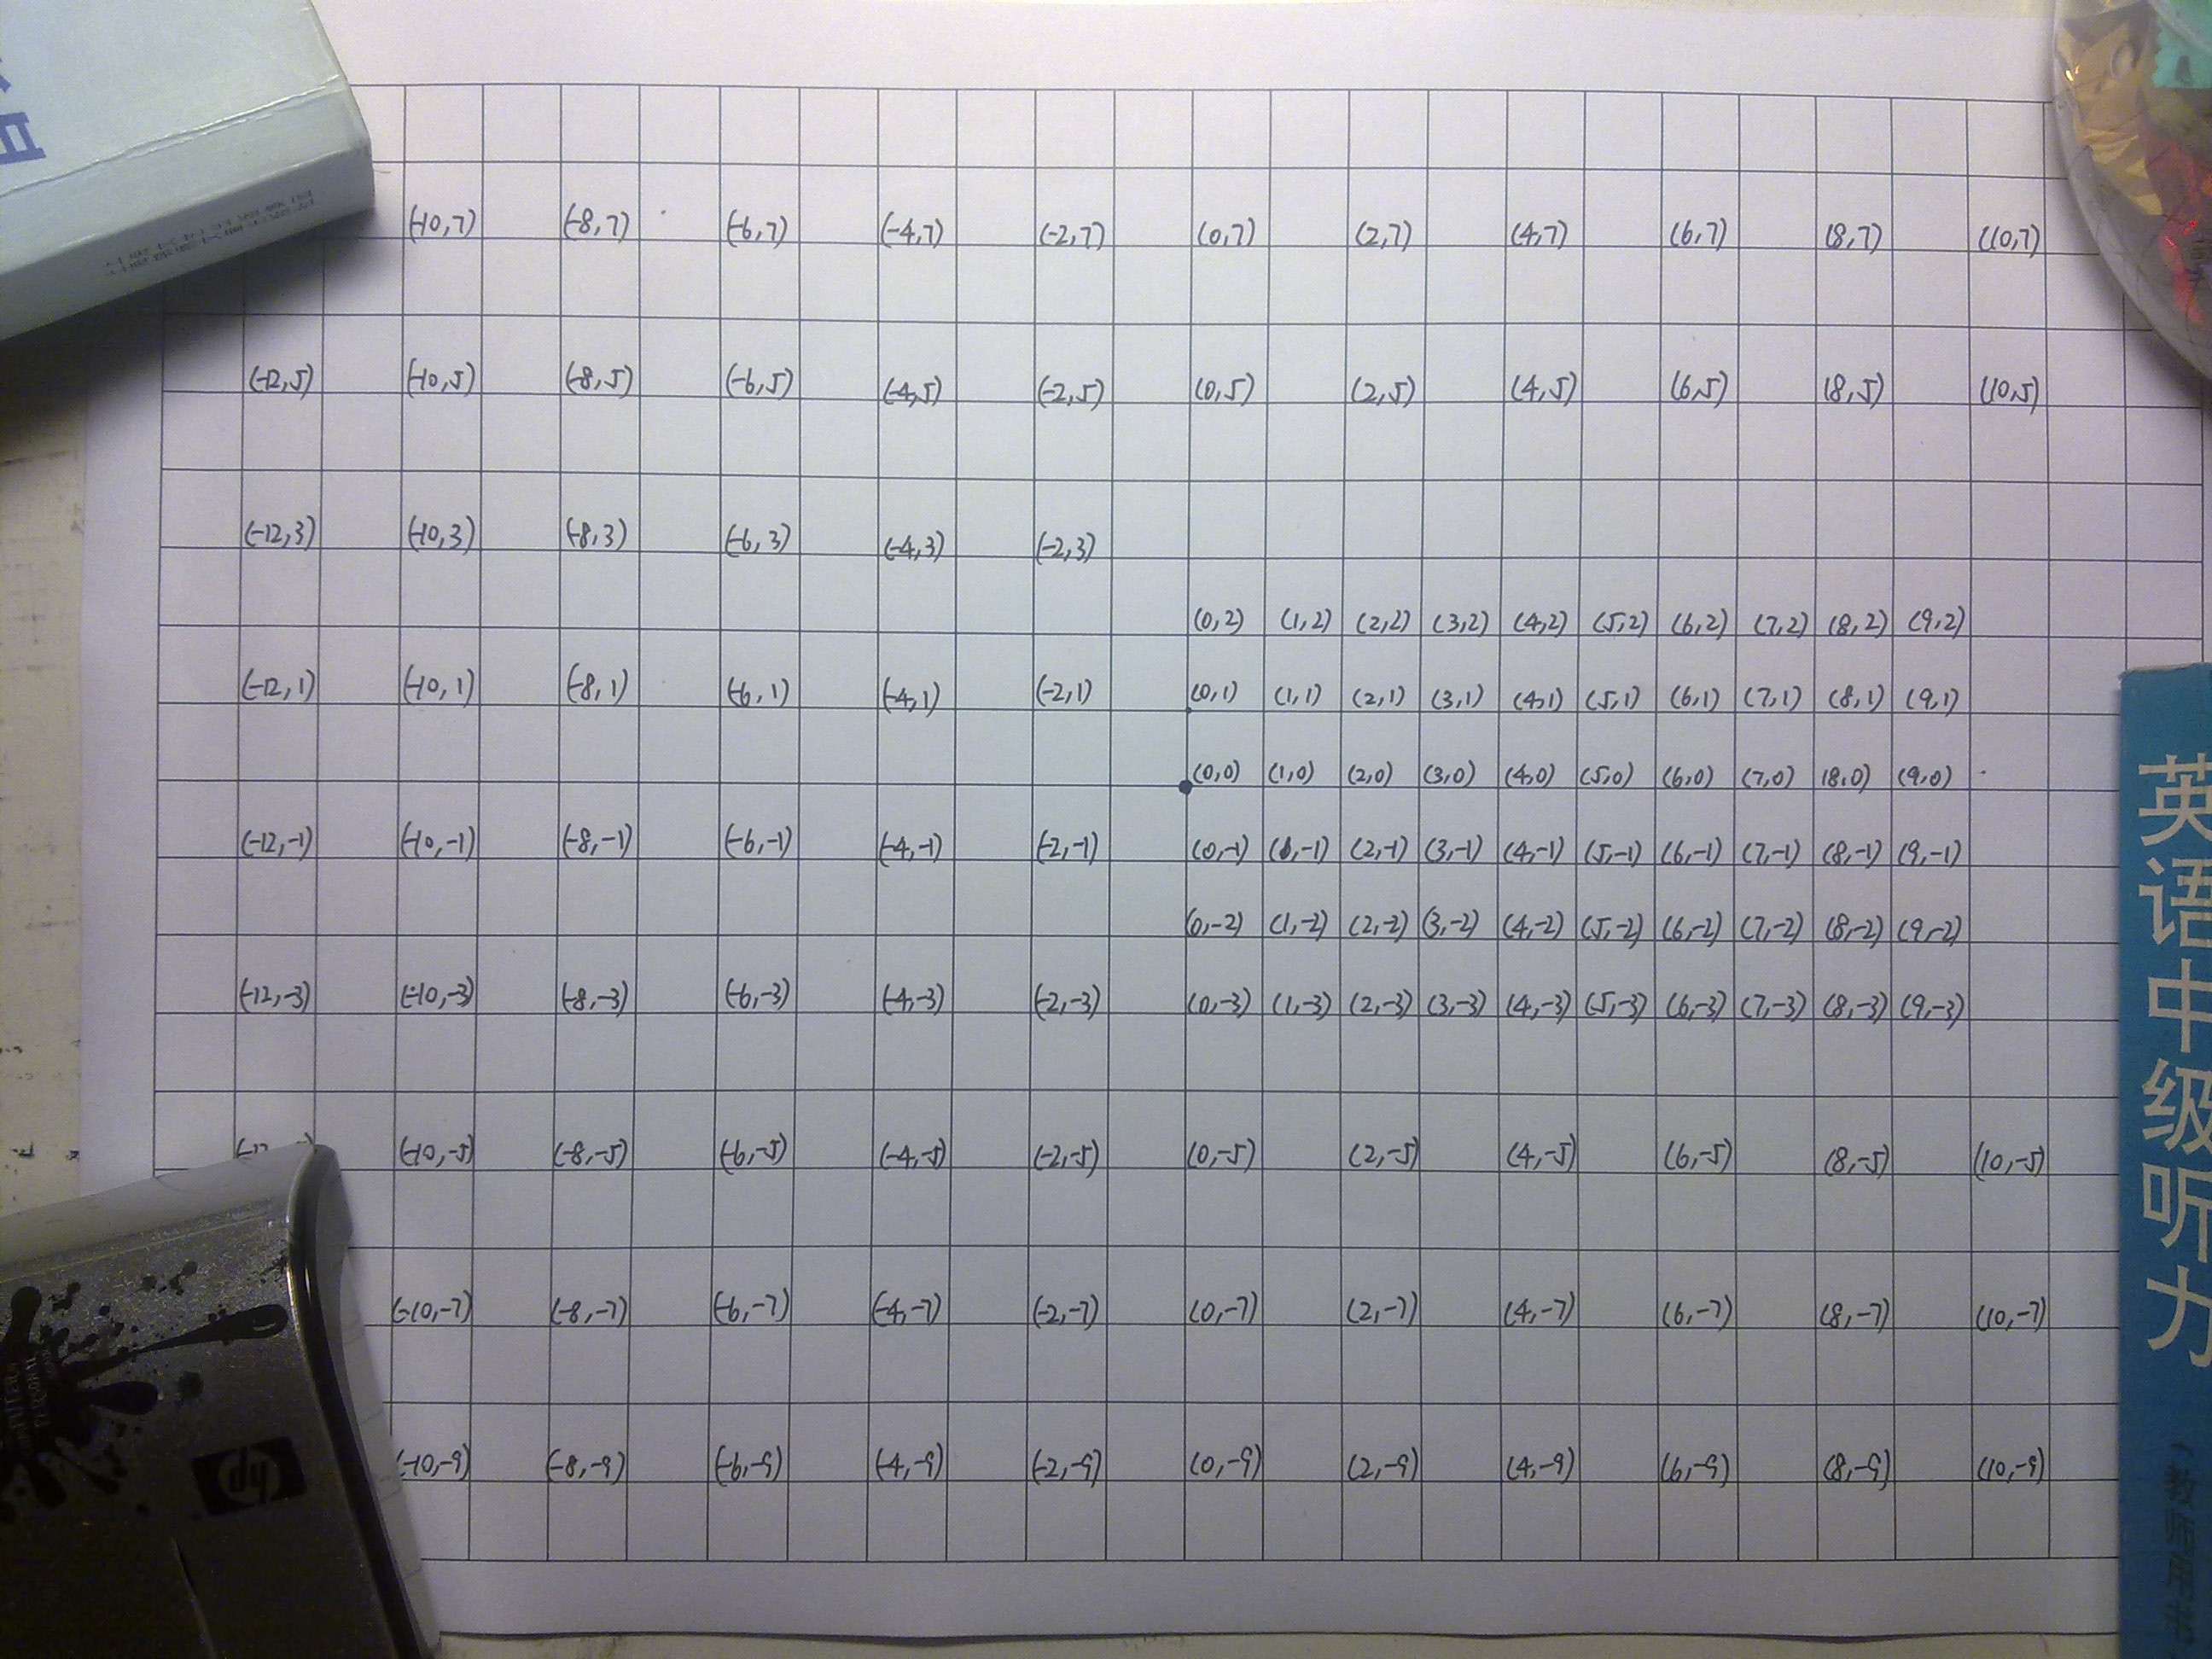 (-10,7) (-8,7) (-6,7) (-4,7) (-2,7) (0,7) (2,7) (4,7) (6,7) (8,7) (10,7)
(-12,5) (-10,5) (-8,5) (-6,5) (-4,5) (-2,5) (0,5) (2,5) (4,5) (6,5) (8,5) (10,5)
(-12,3) (-10,3) (-8,3) (-6,3) (-4,3) (-2,3)
(0,2) (1,2) (2,2) (3,2) (4,2) (5,2) (6,2) (7,2) (8,2) (9,2)
(-12,1) (-10,1) (-8,1) (-6,1) (-4,1) (-2,1) (0,1) (1,1) (2,1) (3,1) (4,1) (5,1) (6,1) (7,1) (8,1) (9,1)
(0,0) (1,0) (2,0) (3,0) (4,0) (5,0) (6,0) (7,0) (8,0) (9,0)
(-12,-1) (-10,-1) (-8,-1) (-6,-1) (-4,-1) (-2,-1) (0,-1) (1,-1) (2,-1) (3,-1) (4,-1) (5,-1) (6,-1) (7,-1) (8,-1) (9,-1)
(0,-2) (1,-2) (2,-2) (3,-2) (4,-2) (5,-2) (6,-2) (7,-2) (8,-2) (9,-2)
(-12,-3) (-10,-3) (-8,-3) (-6,-3) (-4,-3) (-2,-3) (0,-3) (1,-3) (2,-3) (3,-3) (4,-3) (5,-3) (6,-3) (7,-3) (8,-3) (9,-3)
(-10,-5) (-8,-5) (-6,-5) (-4,-5) (-2,-5) (0,-5) (2,-5) (4,-5) (6,-5) (8,-5) (10,-5)
(-10,-7) (-8,-7) (-6,-7) (-4,-7) (-2,-7) (0,-7) (2,-7) (4,-7) (6,-7) (8,-7) (10,-7)
(-10,-9) (-8,-9) (-6,-9) (-4,-9) (-2,-9) (0,-9) (2,-9) (4,-9) (6,-9) (8,-9) (10,-9)
hp
英语中级听力
(教师用书